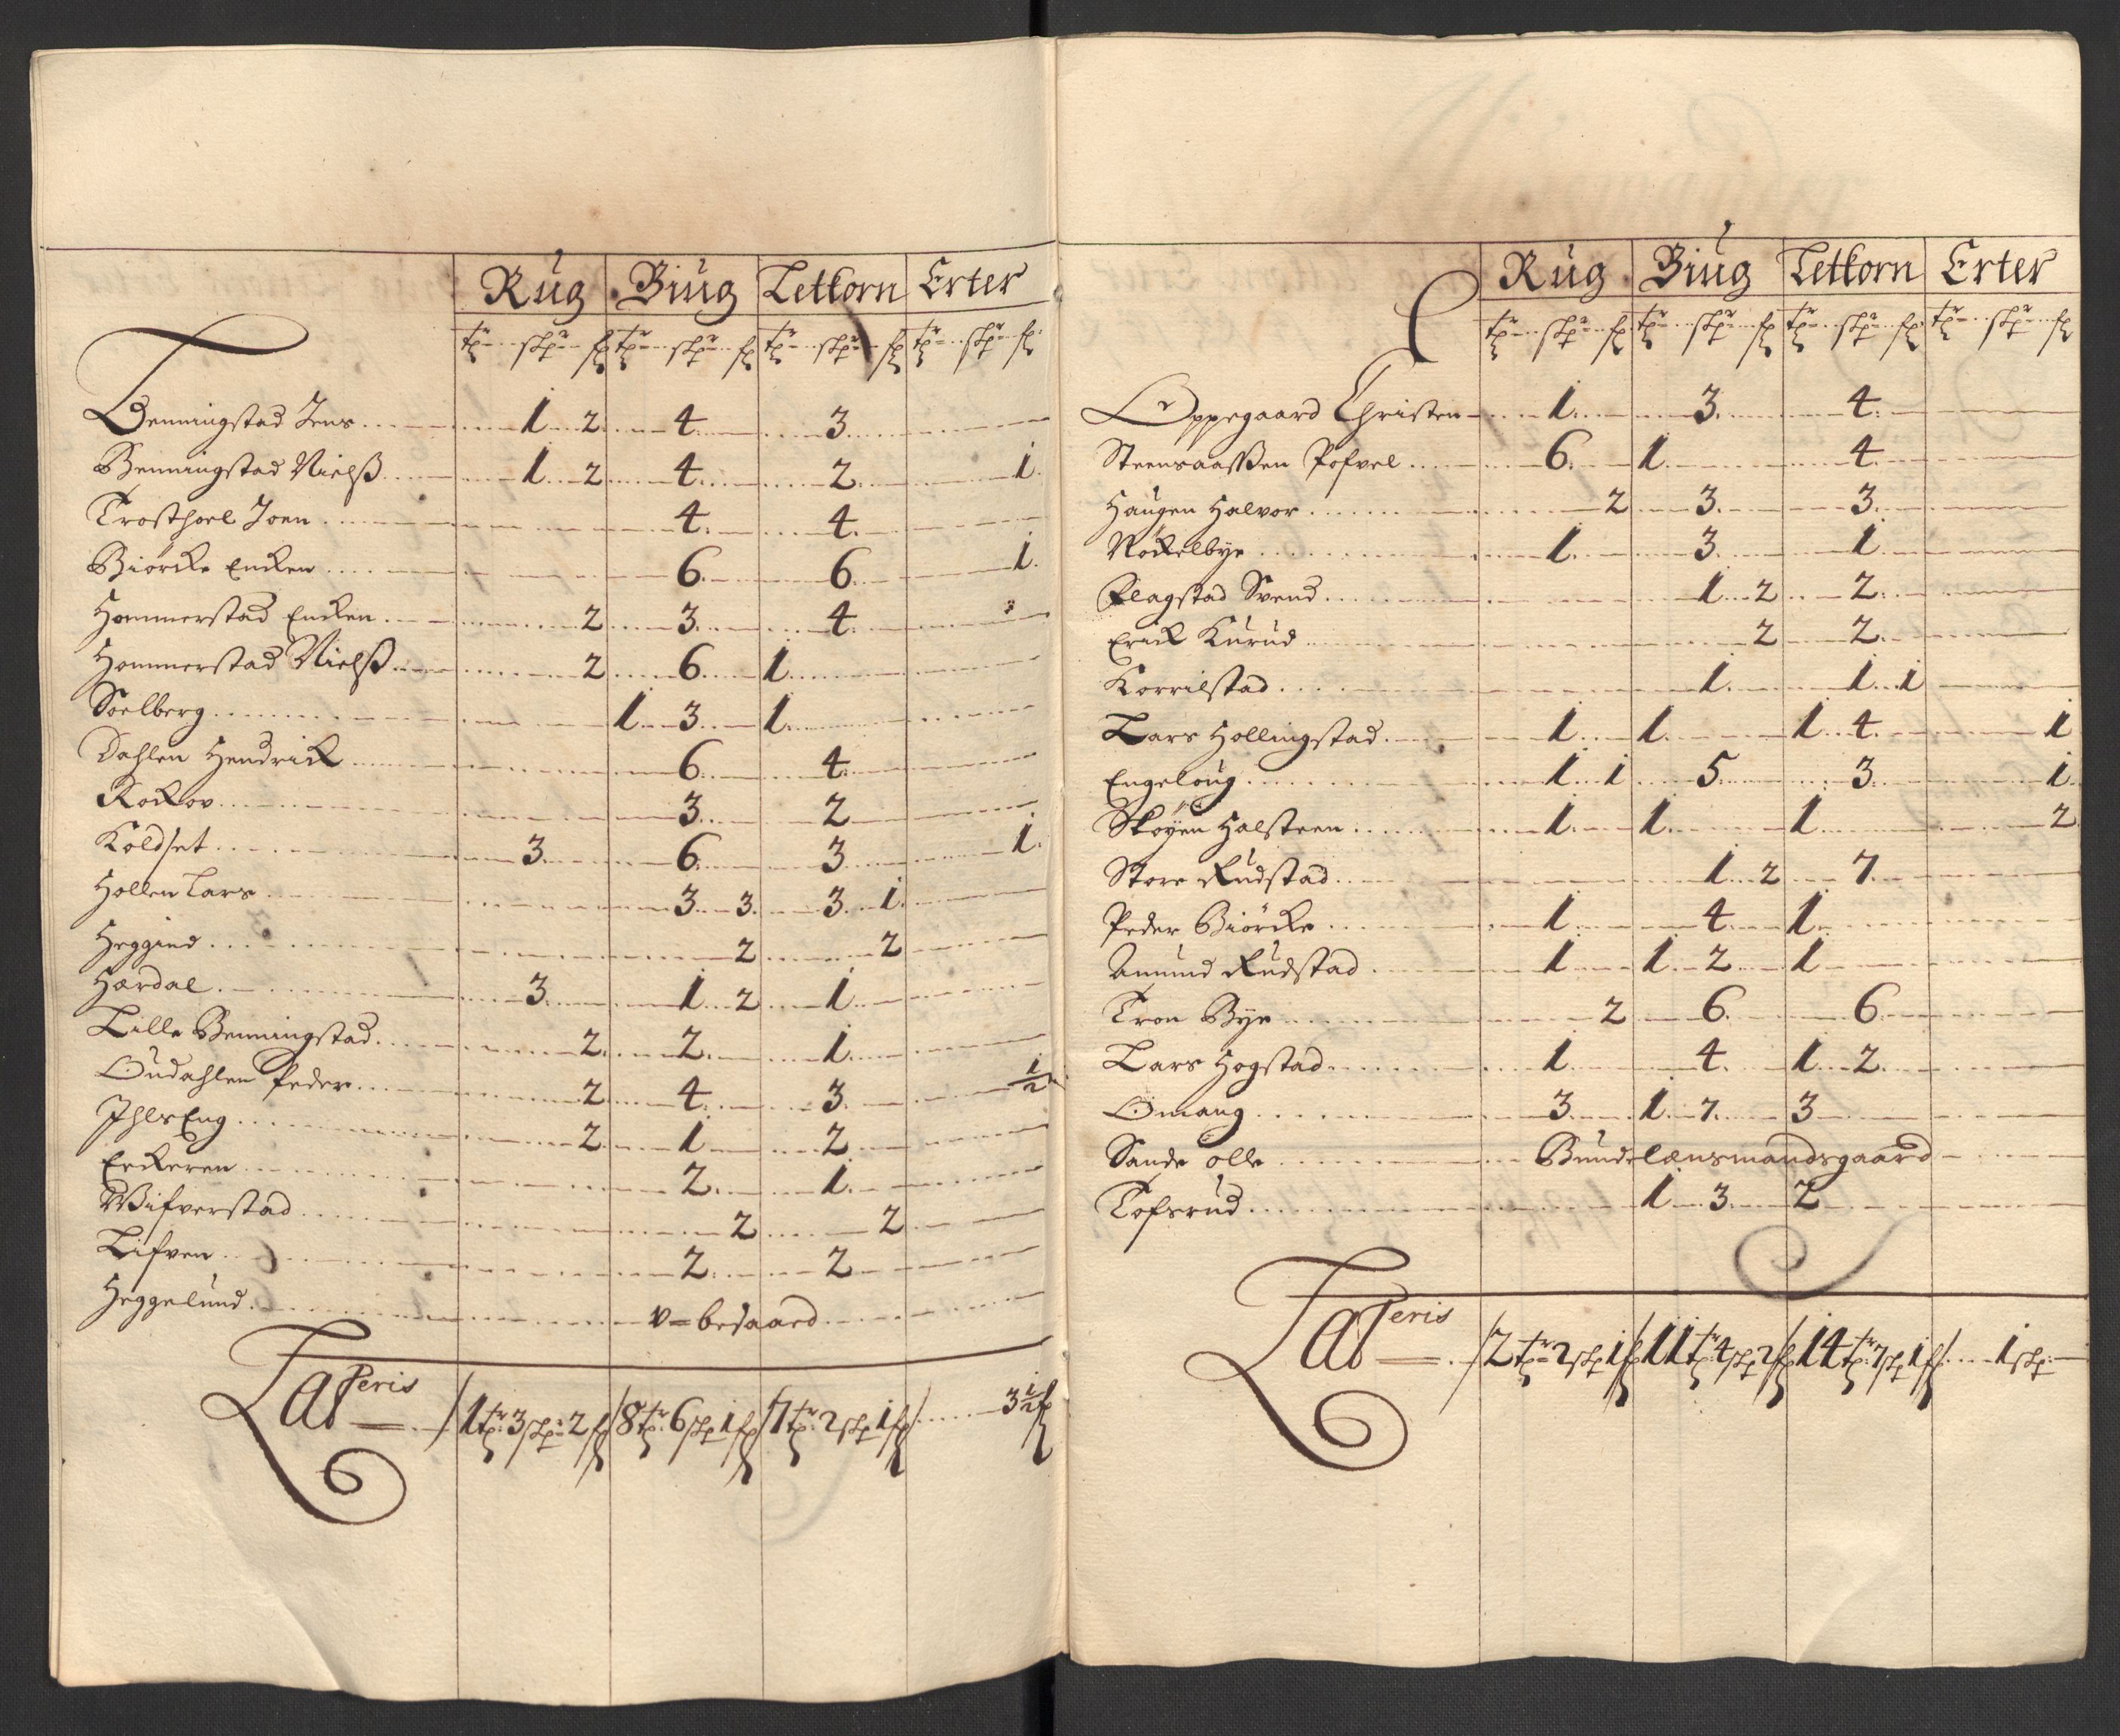 Rug Biug Letkorn Erter
tr skpr fr tr skpr fr tr skpr fr tr skpr fr
Benningstad Jens 1 2 4 3
Benningstad Nielß 1 2 4 2 1
Trosthoel Joen 4 4
Biørcke Encken 6 6 1
Hommerstad Encken 2 3 4
Hommerstad Nielß 2 6 1
Soelberg 1 3 1
Dahlen Hendrick 6 4
Kockov 3 2
Koldset 3 6 3 1
Hollen Lars 3 3 3 1
Heggind 2 2
Hardal 3 1 2 1
Lille Benningstad 2 2 1
Oudahlen Peder 2 4 3 ½
IhlsEng 2 1 2
Eeckeren 2 1
Wifverstad 2 2
Lifven 2 2
Heggelund
Lateris 1 tr 3 skp 2 f 8 tr 6 skp 1 f 7 tr 2 skp 1 f 3½ f
Rug Biug Letkorn Erter
tr skpr fr tr skpr fr tr skpr fr tr skpr fr
Oppegaard Christen 1 3 4
Steensaaßen Pofvel 6 1 4
Haugen Halvor 2 3 3
Nøckelbye 1 3 1
Flagstad Svend 1 2 2
Erick Kurud 2 2
Korrilstad 1 1 1
Lars Hollingstad 1 1 1 4 1
Engeloug 1 1 5 3 1
Skøyen Halsteen 1 1 1 2
Store Rudstad 1 2 7
Peder Biørcke 1 4 1
Amund Rudstad 1 1 2 1
Tron Bye 2 6 6
Lars Hogstad 1 4 1 2
Omang 3 1 7 3
Sande olle Bundelænsmandsgaard
Tofsrud 1 3 2
Lateris 2 tr 2 skp 1 f 11 tr 4 skp 2 f 14 tr 7 skp 1 f 1 skp